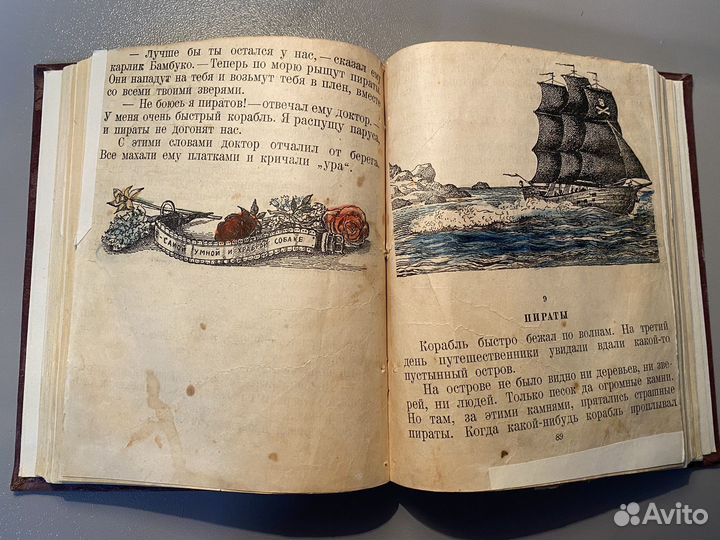 — Лучше бы ты остался у нас, — сказал ему
карлик Бамбуко. — Теперь по морю рыщут пираты.
Они нападут на тебя и возьмут тебя в плен, вместе
со всеми твоими зверями.
— Не боюсь я пиратов! — отвечал ему доктор. —
У меня очень быстрый корабль. Я распущу паруса,
и пираты не догонят нас.
С этими словами доктор отчалил от берега.
Все махали ему платками и кричали „ура“.
САМОЙ УМНОЙ И ХРАБРОЙ СОБАКЕ
9
ПИРАТЫ
Корабль быстро бежал по волнам. На третий
день путешественники увидали вдали какой-то
пустынный остров.
На острове не было видно ни деревьев, ни зве-
рей, ни людей. Только песок да огромные камни.
Но там, за этими камнями, прятались страшные
пираты. Когда какой-нибудь корабль проплывал
89
Avito